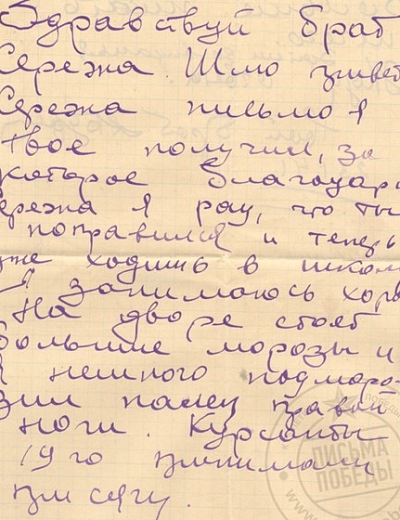 Здравствуй брат
Сережа. Шлю привет
Сережа письмо я
твое получил, за
которое благодар
ережа я рад, что ты
поправился и теперь
уже ходишь в школ
Я занимаюсь хоро
На дворе стоят
большие морозы и
я немного подморо-
зил палец правой
ноги. Курсанты
19 го принимали
присягу.
ПИСЬМА
ПОБЕДЫ